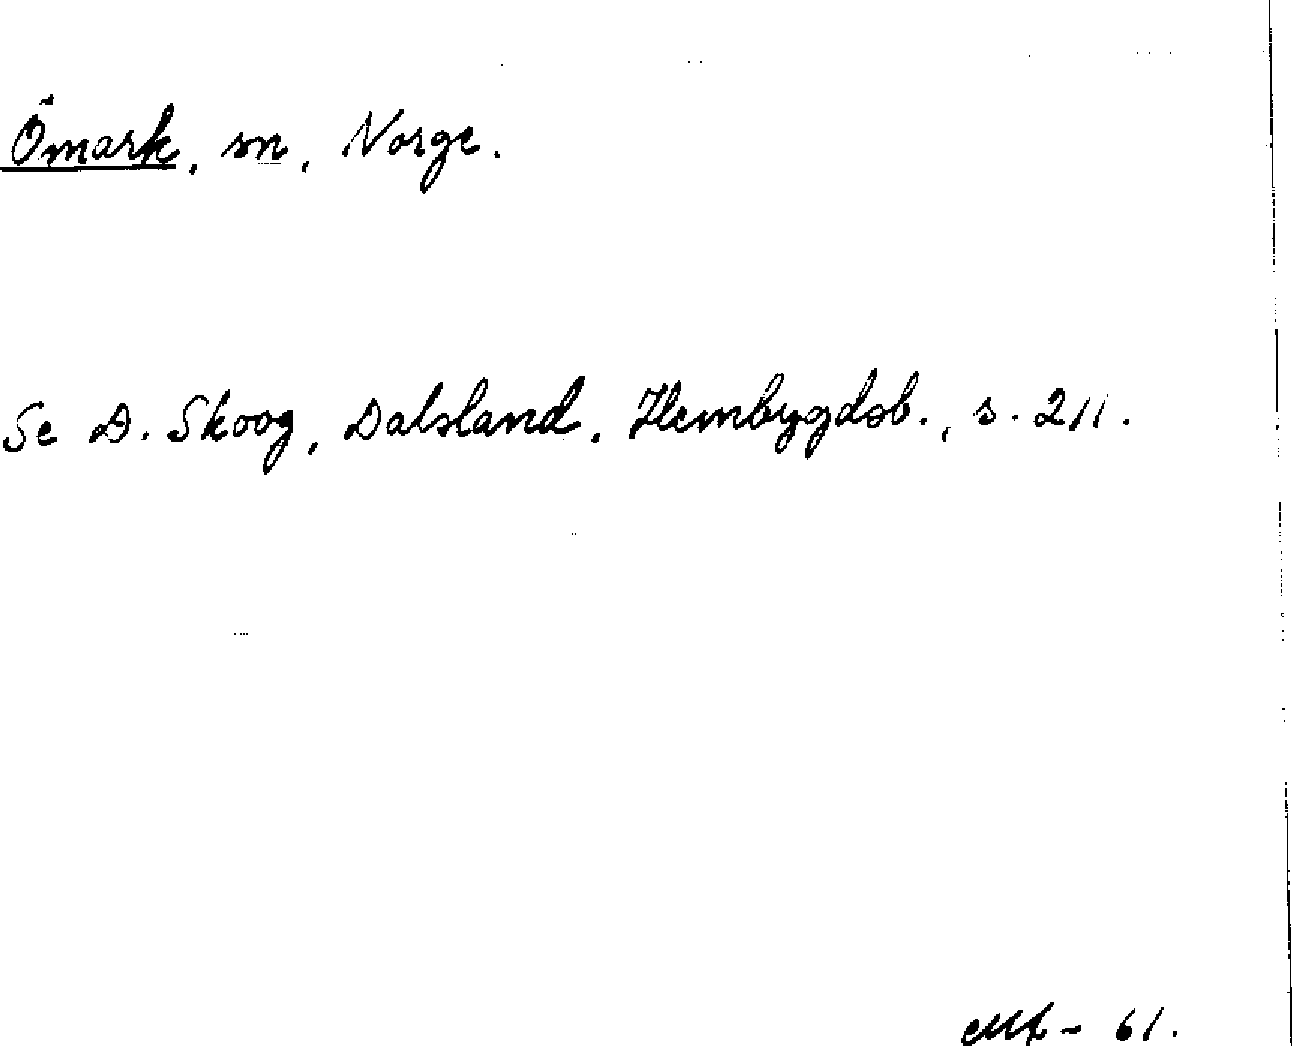 Ömark, sn, Norge.
Se D. Skoog, Dalsland. Hembygdsb., s. 211.
61.